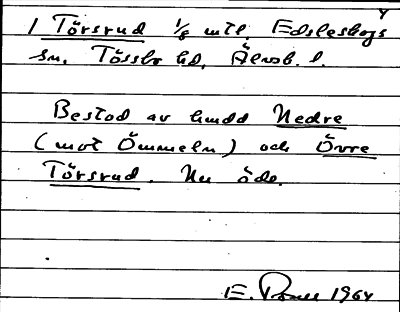 1 Törsrud 1/8 mtl. Edsleskogs
sn. Tössbo hd. Älvsb. l.
Bestod av Nedre
(mot Ömmeln) och Övre
Törsrud. Nu öde.
E. 1964